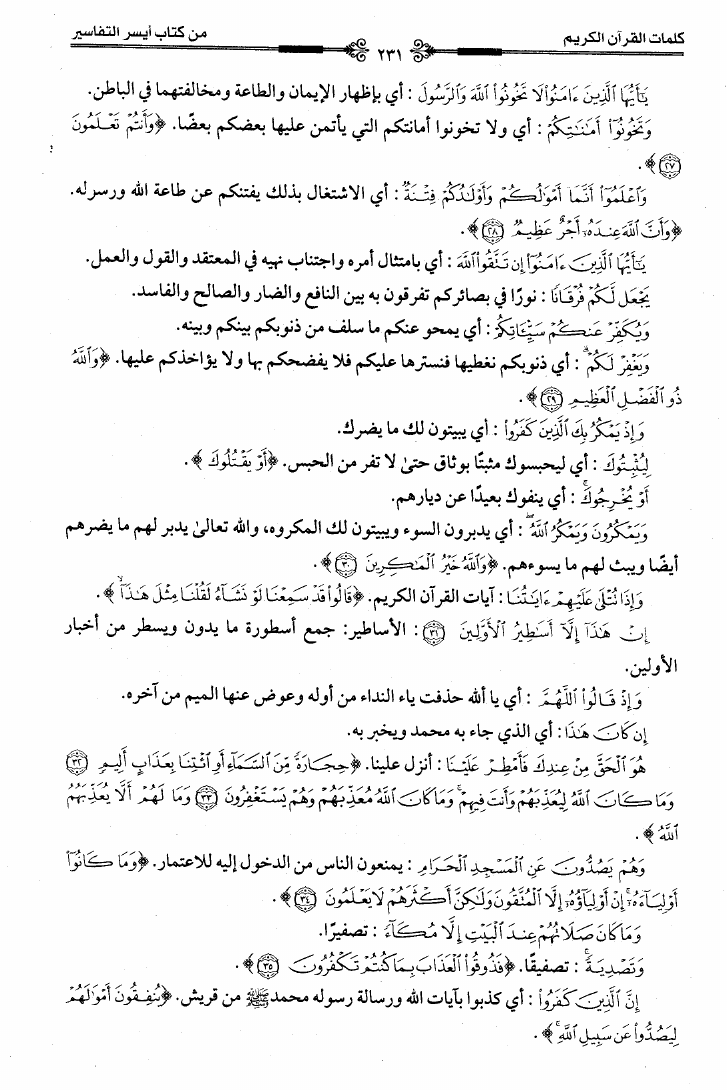 كلمات القرآن الكريم ٢٣١ من كتاب أيسر التفاسير
يَٰٓأَيُّهَا ٱلَّذِينَ ءَامَنُوا۟ لَا تَخُونُوا۟ ٱللَّهَ وَٱلرَّسُولَ : أي بإظهار الإيمان والطاعة ومخالفتهما في الباطن.
وَتَخُونُوٓا۟ أَمَٰنَٰتِكُمْ : أي ولا تخونوا أمانتكم التي يأتمن عليها بعضكم بعضًا. ﴿وَأَنتُمْ تَعْلَمُونَ
٢٧﴾.
وَٱعْلَمُوٓا۟ أَنَّمَآ أَمْوَٰلُكُمْ وَأَوْلَٰدُكُمْ فِتْنَةٌ : أي الاشتغال بذلك يفتنكم عن طاعة الله ورسوله.
﴿وَأَنَّ ٱللَّهَ عِندَهُۥٓ أَجْرٌ عَظِيمٌ ٢٨﴾.
يَٰٓأَيُّهَا ٱلَّذِينَ ءَامَنُوٓا۟ إِن تَتَّقُوا۟ ٱللَّهَ : أي بامتثال أمره واجتناب نهيه في المعتقد والقول والعمل.
يَجْعَل لَّكُمْ فُرْقَانًا : نورًا في بصائركم تفرقون به بين النافع والضار والصالح والفاسد.
وَيُكَفِّرْ عَنكُمْ سَيِّـَٔاتِكُمْ : أي يمحو عنكم ما سلف من ذنوبكم بينكم وبينه.
وَيَغْفِرْ لَكُمْ ۗ : أي ذنوبكم نغطيها فنسترها عليكم فلا يفضحكم بها ولا يؤاخذكم عليها. ﴿وَٱللَّهُ
ذُو ٱلْفَضْلِ ٱلْعَظِيمِ ٢٩﴾.
وَإِذْ يَمْكُرُ بِكَ ٱلَّذِينَ كَفَرُوا۟ : أي يبيتون لك ما يضرك.
لِيُثْبِتُوكَ : أي ليحبسوك مثبتًا بوثاق حتىٰ لا تفر من الحبس. ﴿أَوْ يَقْتُلُوكَ﴾.
أَوْ يُخْرِجُوكَ ۚ : أي ينفوك بعيدًا عن ديارهم.
وَيَمْكُرُونَ وَيَمْكُرُ ٱللَّهُ ۖ : أي يدبرون السوء ويبيتون لك المكروه، والله تعالىٰ يدبر لهم ما يضرهم
أيضًا ويبث لهم ما يسوءهم. ﴿وَٱللَّهُ خَيْرُ ٱلْمَٰكِرِينَ ٣٠﴾.
وَإِذَا تُتْلَىٰ عَلَيْهِمْ ءَايَٰتُنَا : آيات القرآن الكريم. ﴿قَالُوا۟ قَدْ سَمِعْنَا لَوْ نَشَآءُ لَقُلْنَا مِثْلَ هَٰذَآ ۙ﴾.
إِنْ هَٰذَآ إِلَّآ أَسَٰطِيرُ ٱلْأَوَّلِينَ ٣١ : الأساطير: جمع أسطورة ما يدون ويسطر من أخبار
الأولين.
وَإِذْ قَالُوا۟ ٱللَّهُمَّ : أي يا ألله حذفت ياء النداء من أوله وعوض عنها الميم من آخره.
إِن كَانَ هَٰذَا : أي الذي جاء به محمد ويخبر به.
هُوَ ٱلْحَقَّ مِنْ عِندِكَ فَأَمْطِرْ عَلَيْنَا : أنزل علينا. ﴿حِجَارَةً مِّنَ ٱلسَّمَآءِ أَوِ ٱئْتِنَا بِعَذَابٍ أَلِيمٍ ٣٢
وَمَا كَانَ ٱللَّهُ لِيُعَذِّبَهُمْ وَأَنتَ فِيهِمْ ۚ وَمَا كَانَ ٱللَّهُ مُعَذِّبَهُمْ وَهُمْ يَسْتَغْفِرُونَ ٣٣ وَمَا لَهُمْ أَلَّا يُعَذِّبَهُمُ
ٱللَّهُ﴾.
وَهُمْ يَصُدُّونَ عَنِ ٱلْمَسْجِدِ ٱلْحَرَامِ : يمنعون الناس من الدخول إليه للاعتمار. ﴿وَمَا كَانُوٓا۟
أَوْلِيَآءَهُۥٓ ۚ إِنْ أَوْلِيَآؤُهُۥٓ إِلَّا ٱلْمُتَّقُونَ وَلَٰكِنَّ أَكْثَرَهُمْ لَا يَعْلَمُونَ ٣٤﴾.
وَمَا كَانَ صَلَاتُهُمْ عِندَ ٱلْبَيْتِ إِلَّا مُكَآءً : تصفيرًا.
وَتَصْدِيَةً ۚ : تصفيقًا. ﴿فَذُوقُوا۟ ٱلْعَذَابَ بِمَا كُنتُمْ تَكْفُرُونَ ٣٥﴾.
إِنَّ ٱلَّذِينَ كَفَرُوا۟ : أي كذبوا بآيات الله ورسالة رسوله محمد ﷺ من قريش. ﴿يُنفِقُونَ أَمْوَٰلَهُمْ
لِيَصُدُّوا۟ عَن سَبِيلِ ٱللَّهِ ۚ﴾.